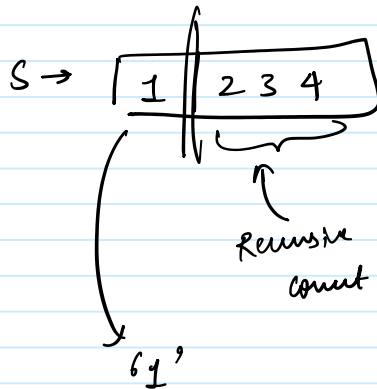 S → 1 2 3 4
Recursive
count
'1'